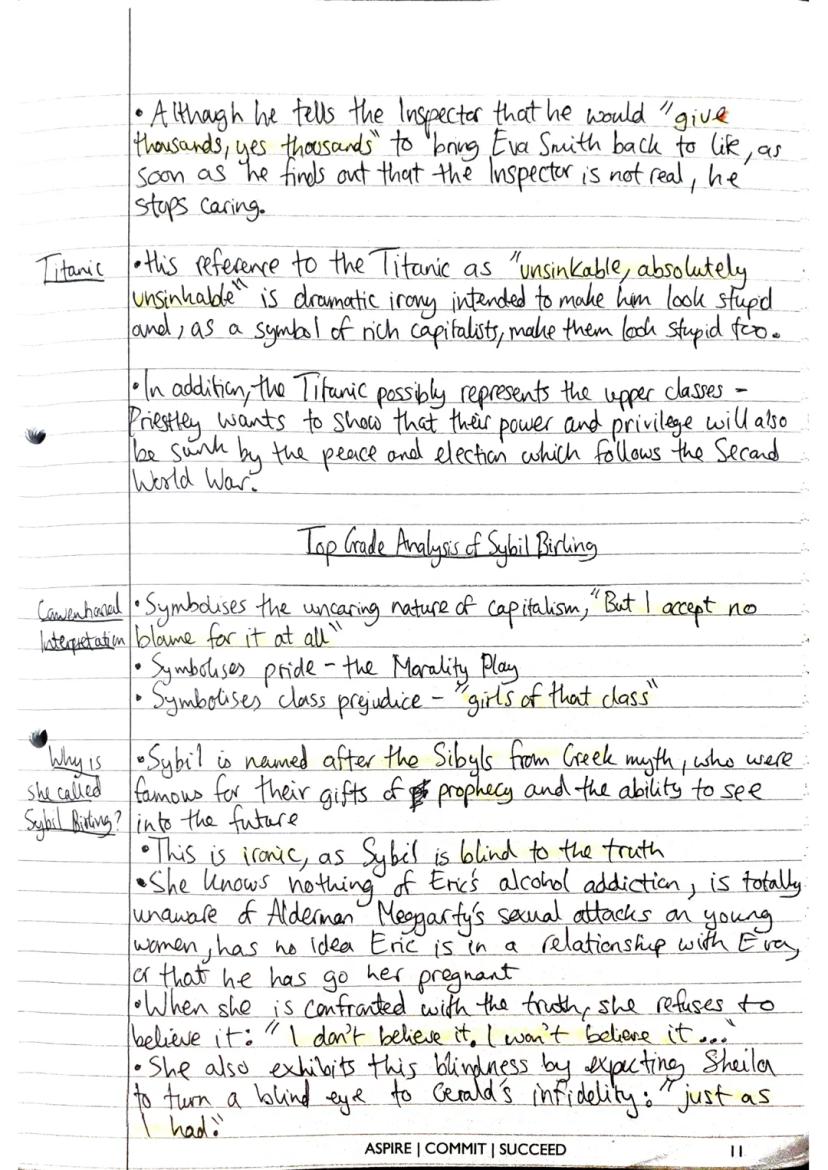 • Although he tells the Inspector that he would "give
thousands, yes thousands" to bring Eva Smith back to life, as
soon as he finds out that the Inspector is not real, he
stops caring.
Titanic
• His reference to the Titanic as "unsinkable, absolutely
unsinkable" is dramatic irony intended to make him look stupid
and, as a symbol of rich capitalists, make them look stupid too.
• In addition, the Titanic possibly represents the upper classes –
Priestley wants to show that their power and privilege will also
be sunk by the peace and election which follows the Second
World War.
Top Grade Analysis of Sybil Birling
Conventional
Interpretation
• Symbolises the uncaring nature of capitalism, "But I accept no
blame for it at all"
• Symbolises pride – the Morality Play
• Symbolises class prejudice – "girls of that class"
Why is
she called
Sybil Birling?
• Sybil is named after the Sibyls from Greek myth, who were
famous for their gifts of prophecy and the ability to see
into the future
• This is ironic, as Sybil is blind to the truth
• She knows nothing of Eric's alcohol addiction, is totally
unaware of Alderman Meggarty's sexual attacks on young
women, has no idea Eric is in a relationship with Eva,
or that he has go her pregnant
• When she is confronted with the truth, she refuses to
believe it: "I don't believe it. I won't believe it..."
• She also exhibits this blindness by expecting Sheila
to turn a blind eye to Gerald's infidelity: "just as
I had."
ASPIRE | COMMIT | SUCCEED
11